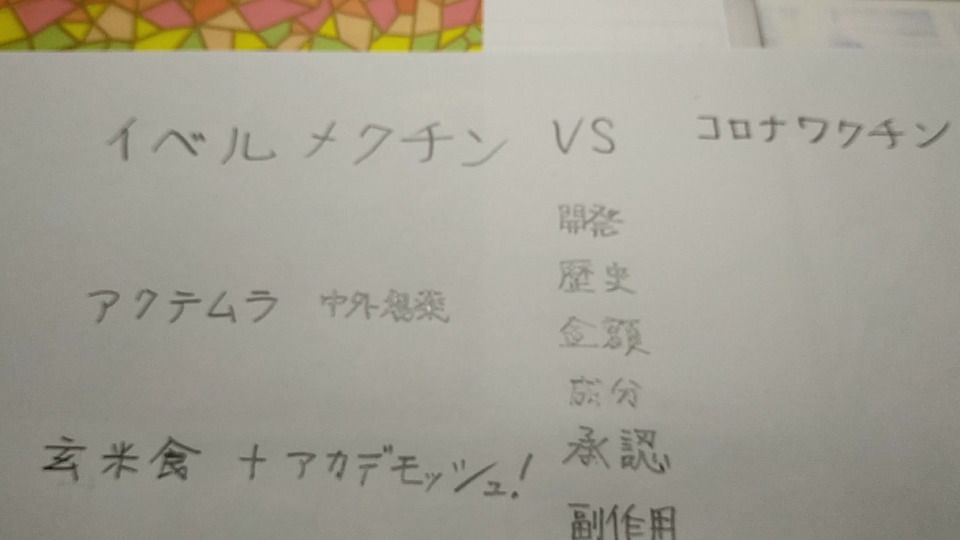 イベルメクチン VS コロナワクチン
開発
歴史
アクテムラ 中外製薬
金額
成分
承認
玄米食 + アカデモッシュ!
副作用